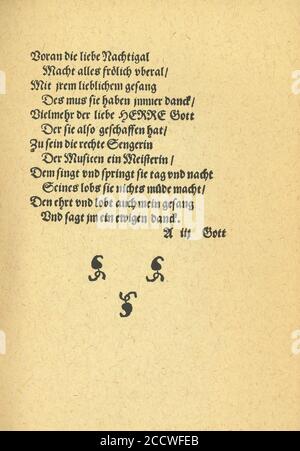 Voran die liebe Nachtigal
Macht alles frölich vberal/
Mit jrem lieblichem gesang
Des mus sie haben jmmer danck/
Vielmehr der liebe HERRE Gott
Der sie also geschaffen hat/
Zu sein die rechte Sengerin
Der Musicen ein Meisterin/
Dem singt vnd springt sie tag vnd nacht
Seines lobs sie nichts müde macht/
Den ehrt vnd lobt auch mein gesang
Vnd sagt jm ein ewigen danck.
Gott
alamy
Image ID: 2CCWFEB
www.alamy.com